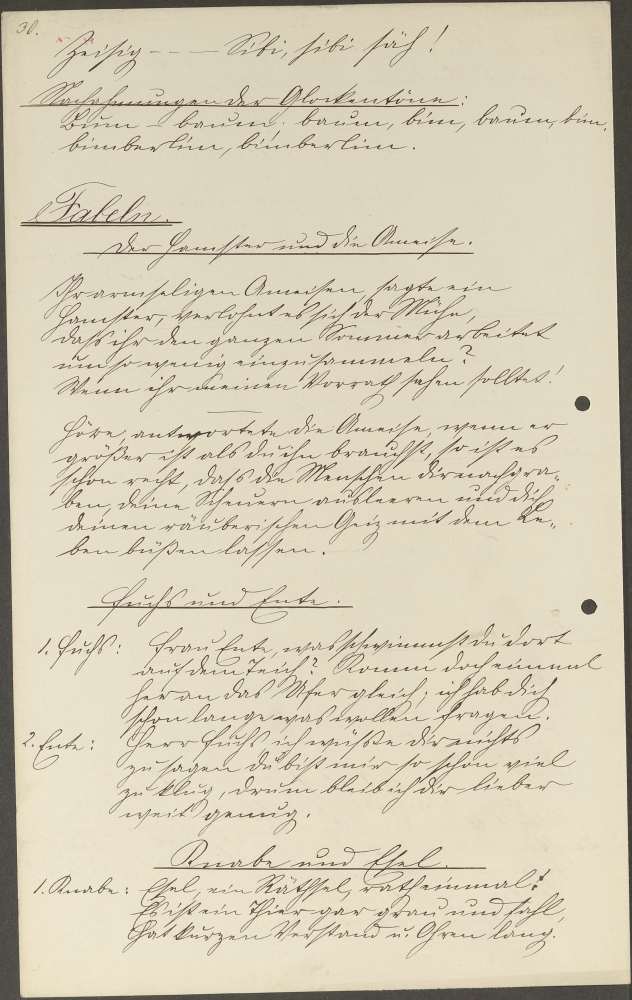 30.
Zeisig - - - Sibi, sibi säh!
Nachahmungen der Glockentöne:
Bum - baum. baum, bim, baum, bim,
bimberlim, bimberlim.
Fabeln.
Der Hamster und die Ameise.
Ihr armseligen Ameisen, sagte ein
Hamster, verlohnt es sich der Mühe,
dass ihr den ganzen Sommer arbeitet
um so wenig einzusammeln?
Wenn ihr meinen Vorrath sehen solltet!
Höre, antwortete die Ameise, wenn er
größer ist als du ihn brauchst, so ist es
schon recht, dass die Menschen dir nachgra-
ben, deine Scheuern ausleeren und dich
deinen räuberischen Geiz mit dem Le-
ben büßen lassen.
Fuchs und Ente.
1. Fuchs: Frau Ente, was schwimmst du dort
auf dem Teich? Komm doch einmal
her an das Ufer gleich; ich hab dich
schon lange was wollen fragen.
2. Ente: Herr Fuchs, ich wüßte dir nichts
zu sagen du bist mir so schon viel
zu klug, drum bleib ich dir lieber
weit genug.
Knabe und Esel.
1. Knabe: Esel, ein Räthsel, rath einmal!
Es ist ein Thier gar grau und fahl,
Hat kurzen Verstand u. Ohren lang.